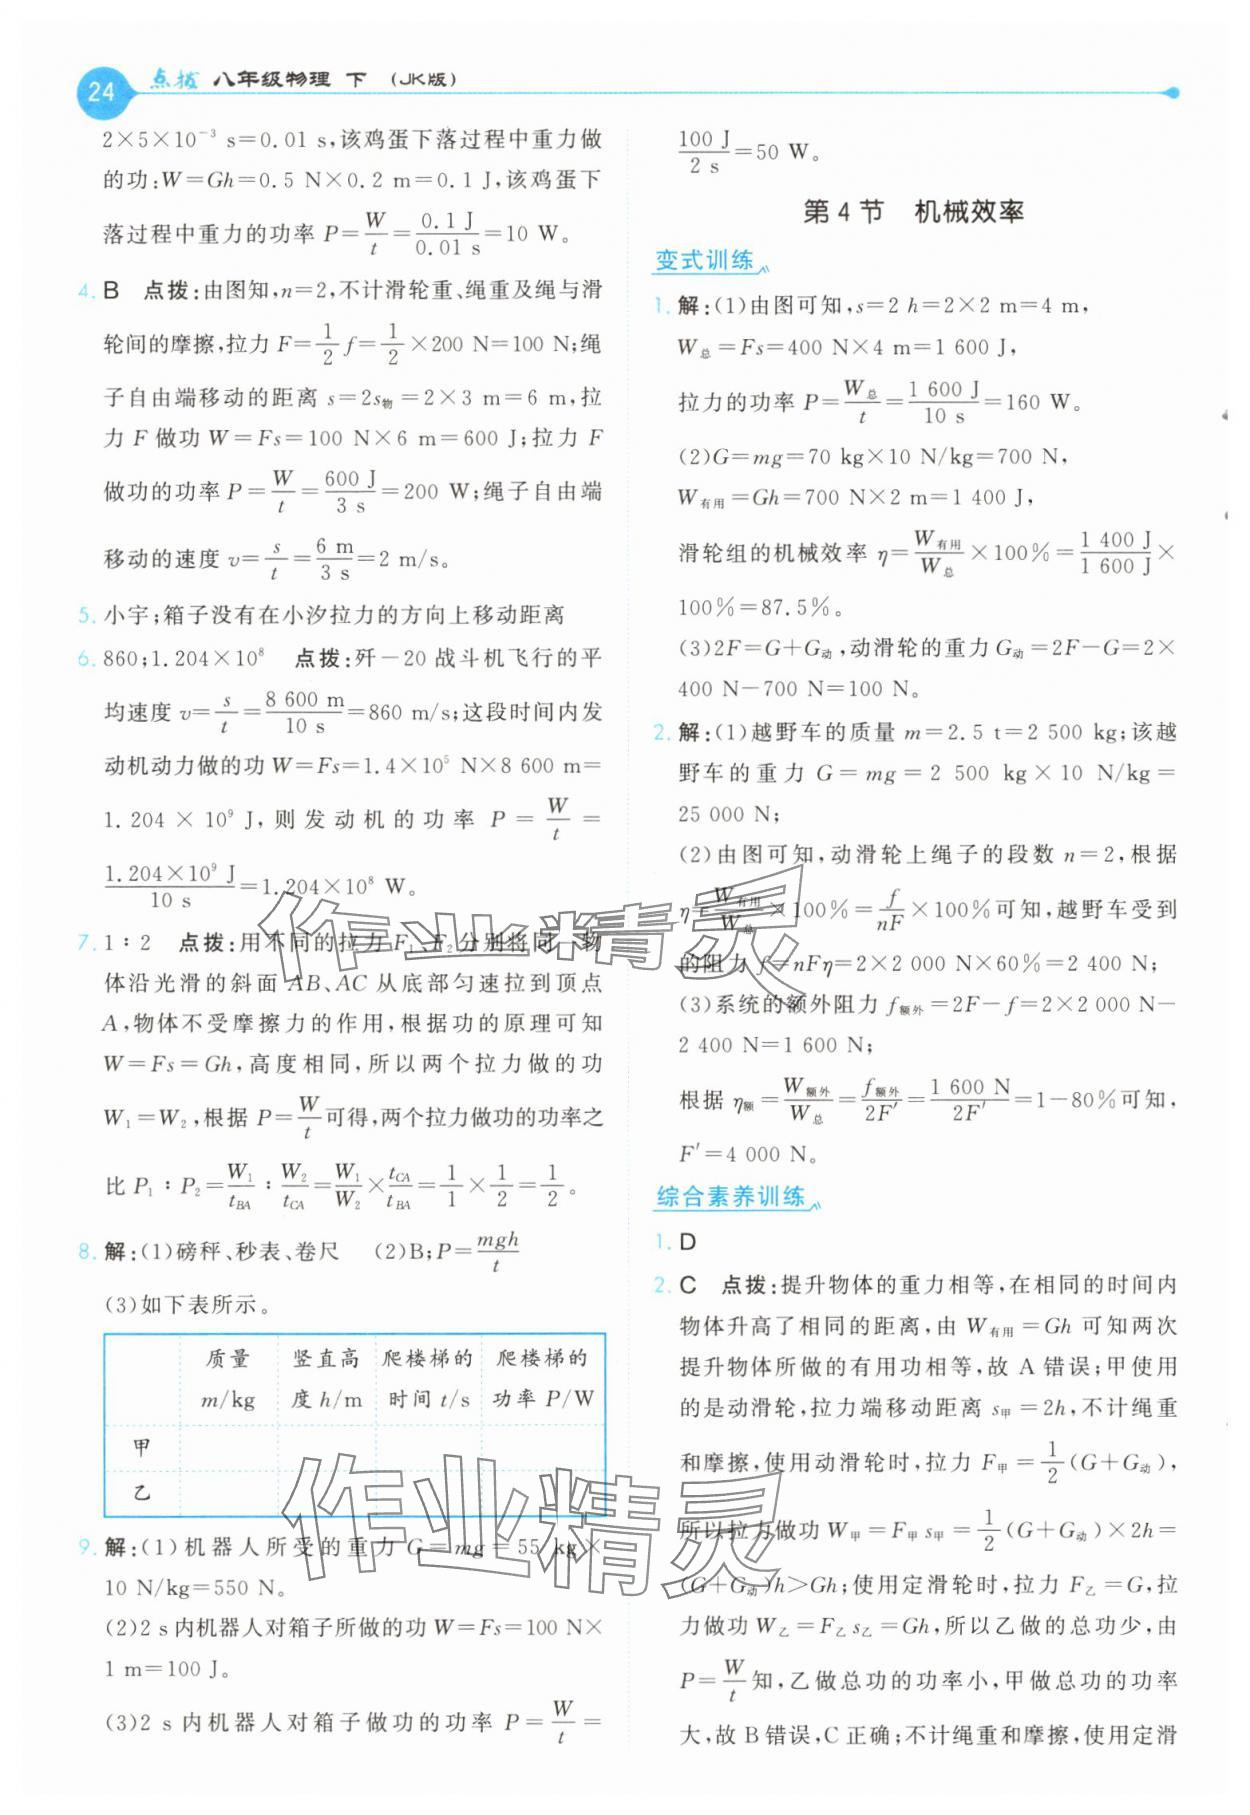 24 点拨 八年级物理 下 （JK版）
2×5×10⁻³ s=0.01 s,该鸡蛋下落过程中重力做
的功:W=Gh=0.5 N×0.2 m=0.1 J,该鸡蛋下
落过程中重力的功率 P=W/t=0.1 J/0.01 s=10 W。
4. B 点拨:由图知,n=2,不计滑轮重、绳重及绳与滑
轮间的摩擦,拉力 F=1/2 f=1/2×200 N=100 N;绳
子自由端移动的距离 s=2s物=2×3 m=6 m,拉
力 F 做功 W=Fs=100 N×6 m=600 J;拉力 F
做功的功率 P=W/t=600 J/3 s=200 W;绳子自由端
移动的速度 v=s/t=6 m/3 s=2 m/s。
5. 小宇;箱子没有在小汐拉力的方向上移动距离
6. 860;1.204×10⁸ 点拨:歼－20 战斗机飞行的平
均速度 v=s/t=8 600 m/10 s=860 m/s;这段时间内发
动机动力做的功 W=Fs=1.4×10⁵ N×8 600 m=
1.204×10⁹ J,则发动机的功率 P=W/t=
1.204×10⁹ J/10 s=1.204×10⁸ W。
7. 1∶2 点拨:用不同的拉力 F₁、F₂ 分别将同一物
体沿光滑的斜面 AB、AC 从底部匀速拉到顶点
A,物体不受摩擦力的作用,根据功的原理可知
W=Fs=Gh,高度相同,所以两个拉力做的功
W₁=W₂,根据 P=W/t可得,两个拉力做功的功率之
比 P₁∶P₂=W₁/tBA∶W₂/tCA=W₁/W₂×tCA/tBA=1/1×1/2=1/2。
8. 解:(1)磅秤、秒表、卷尺 (2)B;P=mgh/t
(3)如下表所示。
质量 竖直高 爬楼梯的 爬楼梯的
m/kg 度 h/m 时间 t/s 功率 P/W
甲
乙
9. 解:(1)机器人所受的重力 G=mg=55 kg×
10 N/kg=550 N。
(2)2 s内机器人对箱子所做的功 W=Fs=100 N×
1 m=100 J。
(3)2 s内机器人对箱子做功的功率 P=W/t=
100 J/2 s=50 W。
第 4 节 机械效率
变式训练
1. 解:(1)由图可知,s=2 h=2×2 m=4 m,
W总=Fs=400 N×4 m=1 600 J,
拉力的功率 P=W总/t=1 600 J/10 s=160 W。
(2)G=mg=70 kg×10 N/kg=700 N,
W有用=Gh=700 N×2 m=1 400 J,
滑轮组的机械效率 η=W有用/W总×100%=1 400 J/1 600 J×
100%=87.5%。
(3)2F=G+G动,动滑轮的重力 G动=2F-G=2×
400 N-700 N=100 N。
2. 解:(1)越野车的质量 m=2.5 t=2 500 kg;该越
野车的重力 G=mg=2 500 kg×10 N/kg=
25 000 N;
(2)由图可知,动滑轮上绳子的段数 n=2,根据
η=W有用/W总×100%=f/nF×100%可知,越野车受到
的阻力 f=nFη=2×2 000 N×60%=2 400 N;
(3)系统的额外阻力 f额外=2F-f=2×2 000 N-
2 400 N=1 600 N;
根据 η额=W额外/W总=f额外/2F′=1 600 N/2F′=1-80%可知,
F′=4 000 N。
综合素养训练
1. D
2. C 点拨:提升物体的重力相等,在相同的时间内
物体升高了相同的距离,由 W有用=Gh 可知两次
提升物体所做的有用功相等,故 A 错误;甲使用
的是动滑轮,拉力端移动距离 s甲=2h,不计绳重
和摩擦,使用动滑轮时,拉力 F甲=1/2(G+G动),
所以拉力做功 W甲=F甲 s甲=1/2(G+G动)×2h=
(G+G动)h>Gh;使用定滑轮时,拉力 F乙=G,拉
力做功 W乙=F乙 s乙=Gh,所以乙做的总功少,由
P=W/t知,乙做总功的功率小,甲做总功的功率
大,故 B 错误,C 正确;不计绳重和摩擦,使用定滑
作业精灵
作业精灵